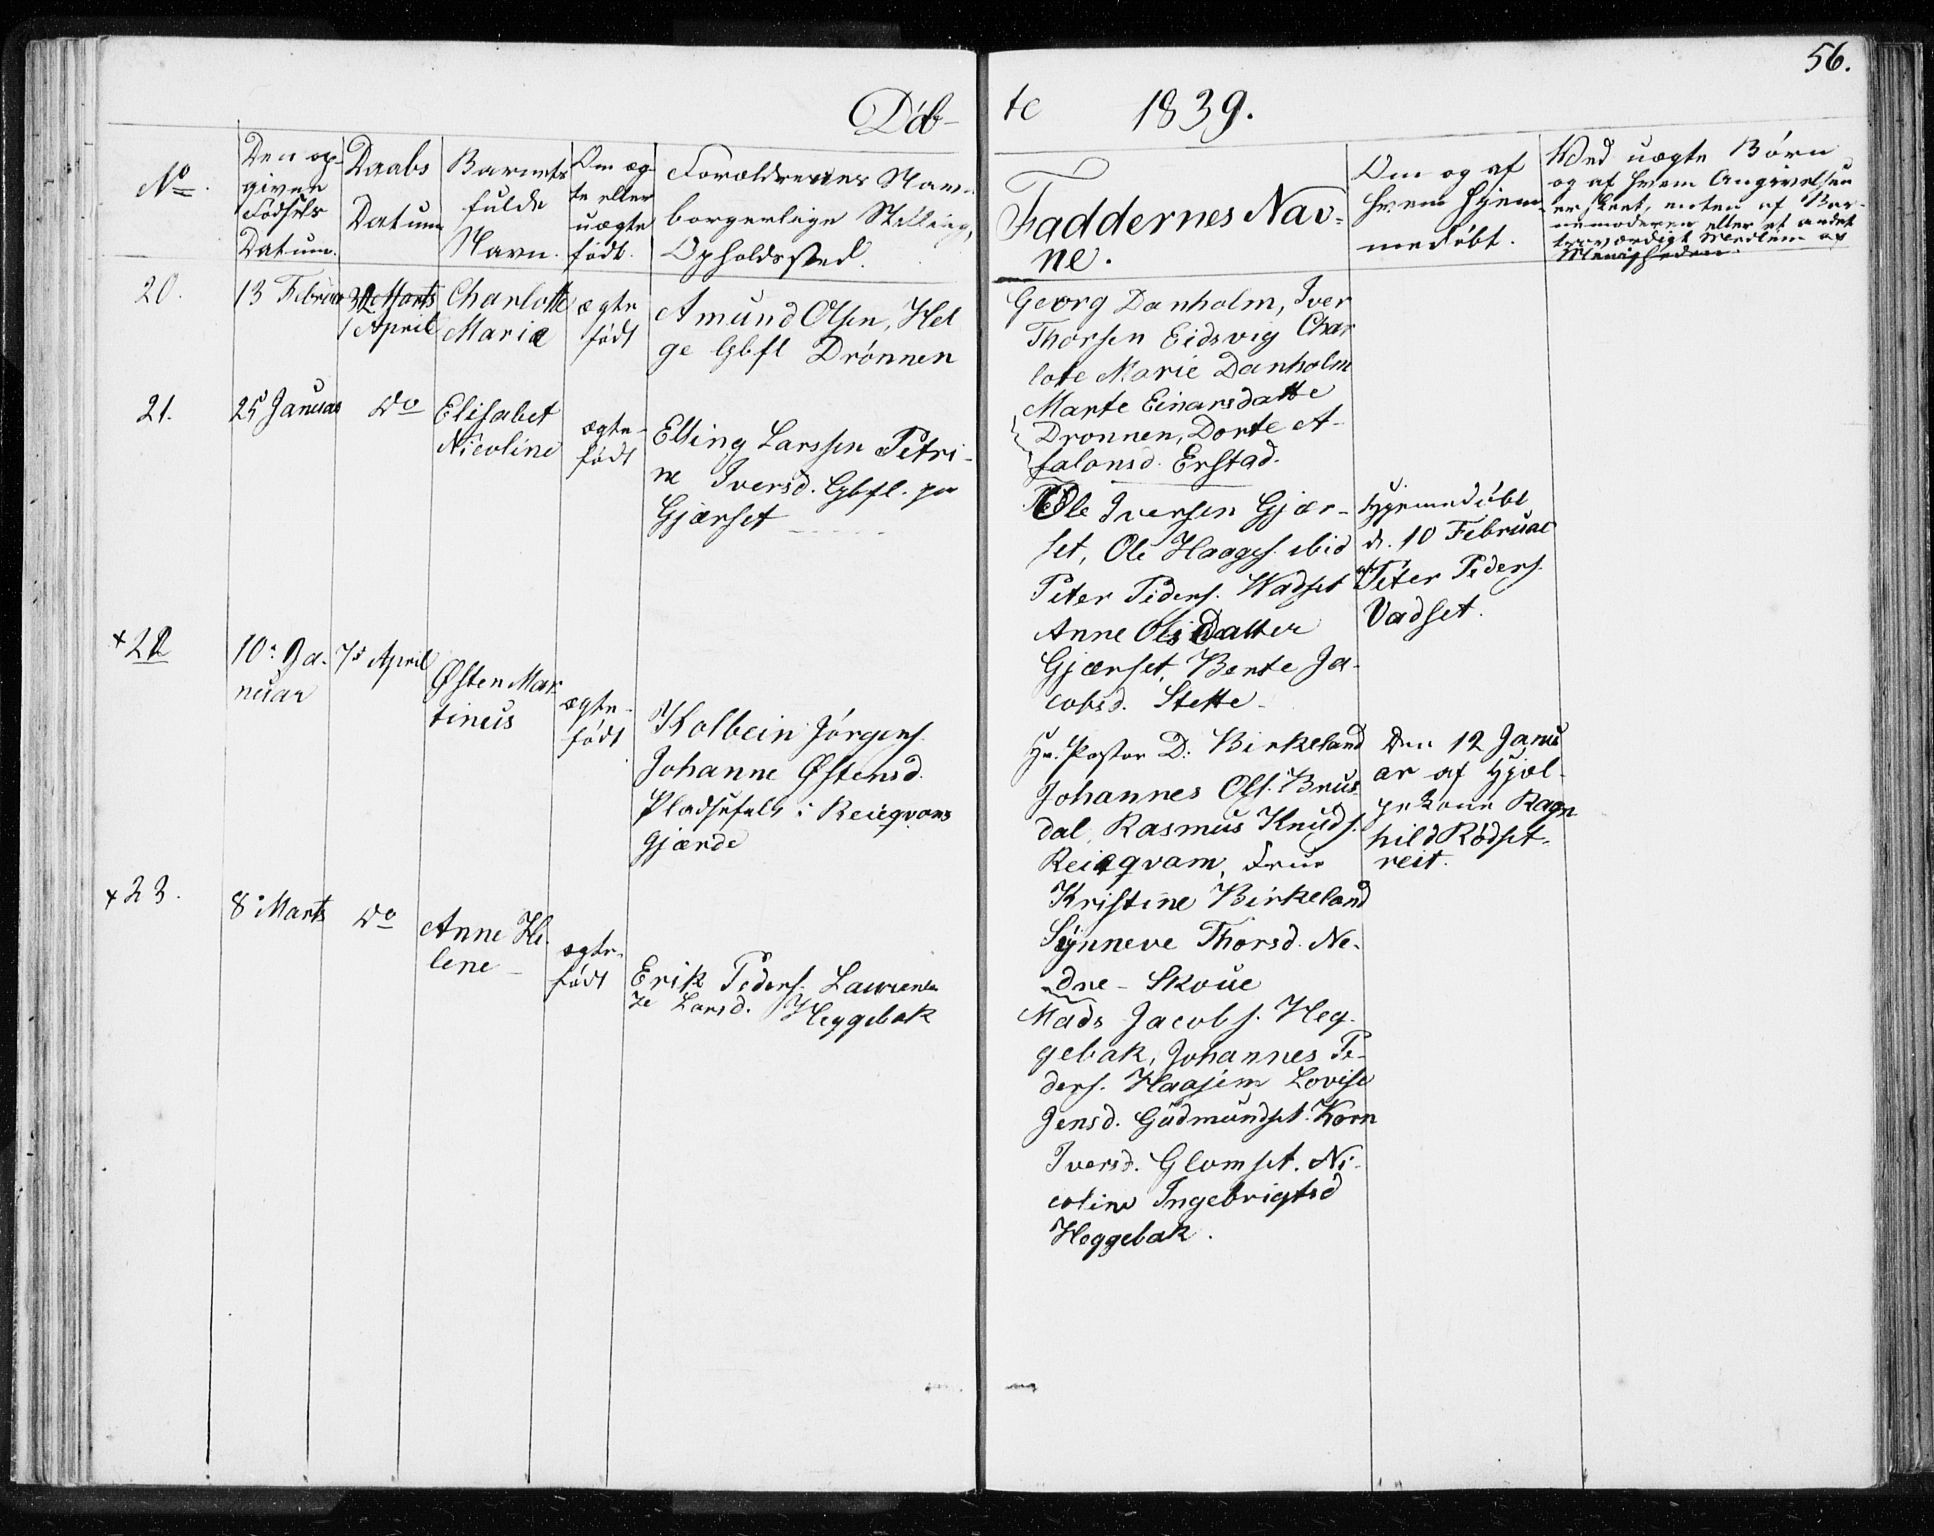 56.
Döb-
te 1839.
No.
Den op-
given
Fødsels
Datum.
Daabs
Datum
Barnets
fulde
Navn.
Om æg-
te eller
uægte
født.
Forældrenes Navn
borgerlige Stilling,
Opholdssted.
Faddernes Nav-
ne.
Om og af
hvem hjem-
medöbt.
Ved uægte Börn
og af hvem Angivelsen
er skeet, enten af Bar-
nemoderen eller et andet
troværdigt Medlem af
Menigheden.
20.
13 Februar
Marts
1 April
Charlotte
Maria
ægte
født
Amund Olsen, Hel
ge Gbfl Drönnen
Georg Danholm, Iver
Thorsen Eidsvig Char
lote Marie Danholm
Marte Einarsdatte
Dronnen, Dorte A-
salonsd. Erstad.
21.
25 Januar
Do
Elisabet
Nicoline
ægte-
født
Elling Larssen Petri-
ne Iversd. Gbfl. paa
Gjærset
Ole Iversen Gjær-
set, Ole Haages. ibid
Peter Peders. Wadset
Anne Olsdatter
Gjærset, Berte Ja-
cobsd. Stette-
Hjemmedöbt
d. 10 Februar
af Peter Peders.
Vadset.
+ 22
10 Ja-
nuar
7d April
Østen Mar
tinus
ægte-
født
Kolbein Jörgens.
Johanne Østensd.
Pladsefolk i Reiaqvam
Gjærde
Hr. Pastor D. Birkeland
Johannes Ols. Brus
dal, Rasmus Knuds.
Reiaqvam, Frue
Kristine Birkeland
Synneve Thorsd. Ne-
dre-Skoue
Den 12 Janu
ar af Hjæl-
pekone Ragn
hild Rödset-
reit.
+ 23.
8 Marts
Do
Anne He-
lene-
ægte-
født
Erik Peders. Lauren
ze Larsd. Heggebak
Mads Jacobs. Heg-
gebak, Johannes Pe-
ders. Haasem Lovise
Jensd. Gudmundset. Karn
Iversd. Glomset. Ni-
coline Ingebrigtsd
Heggebak.